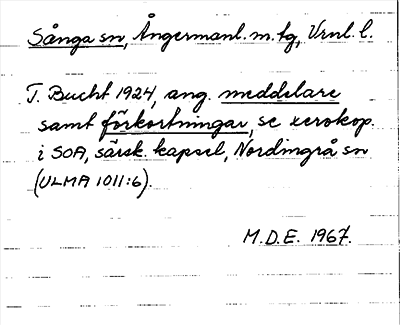 Sånga sn, Ångermanl. m. tg, Vrnl. l.
T. Bucht 1924, ang. meddelare
samt förkortningar, se xerokop.
i SOA, särsk. kapsel, Nordingrå sn
(ULMA 1011:6).
M.D.E. 1967.